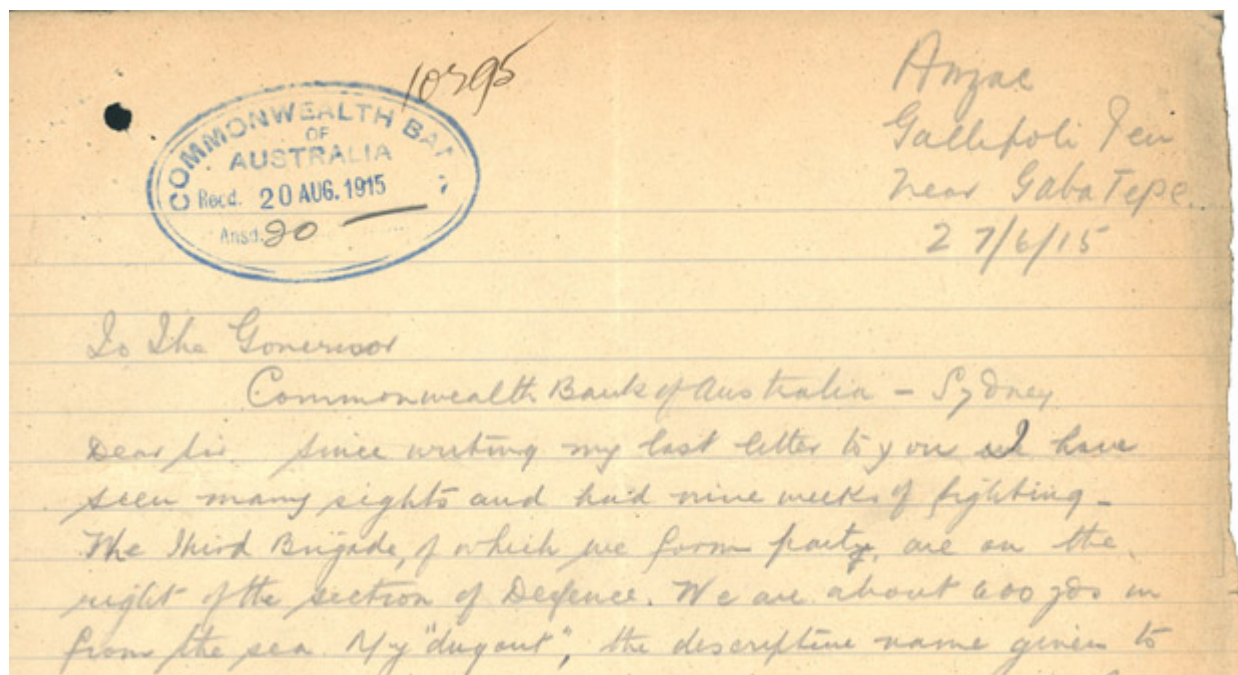 10395
COMMONWEALTH BAN
OF
AUSTRALIA
Recd. 20 AUG. 1915
Ansd. 20
Anzac
Gallipoli Pen
near Gaba Tepe.
27/6/15
To The Governor
Commonwealth Bank of Australia - Sydney
Dear Sir Since writing my last letter to you I have
seen many sights and had nine weeks of fighting -
The Third Brigade, of which we form party, are on the
right of the section of Defence. We are about 600 yds in
from the sea. My "dugout", the descriptive name given to